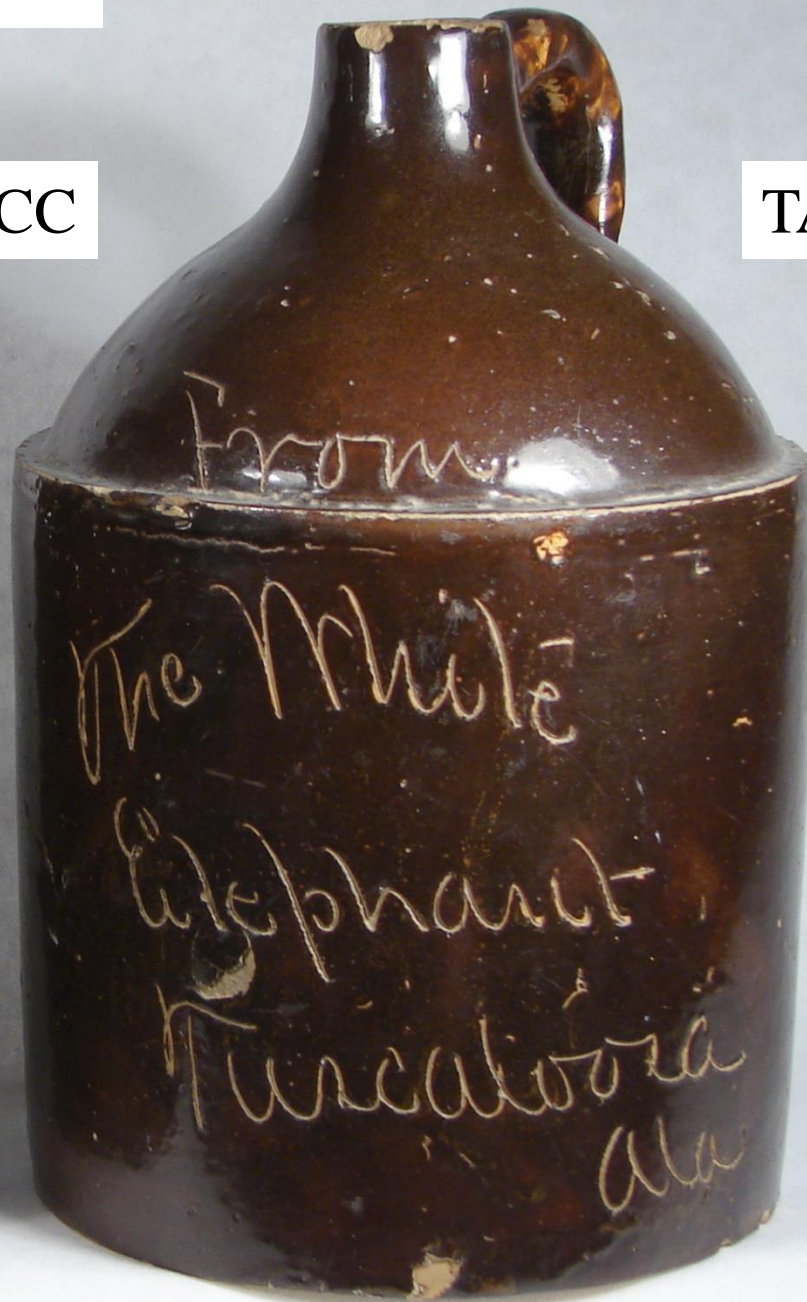 CC
TA
From
The White
Elephant
Tuscaloosa
Ala